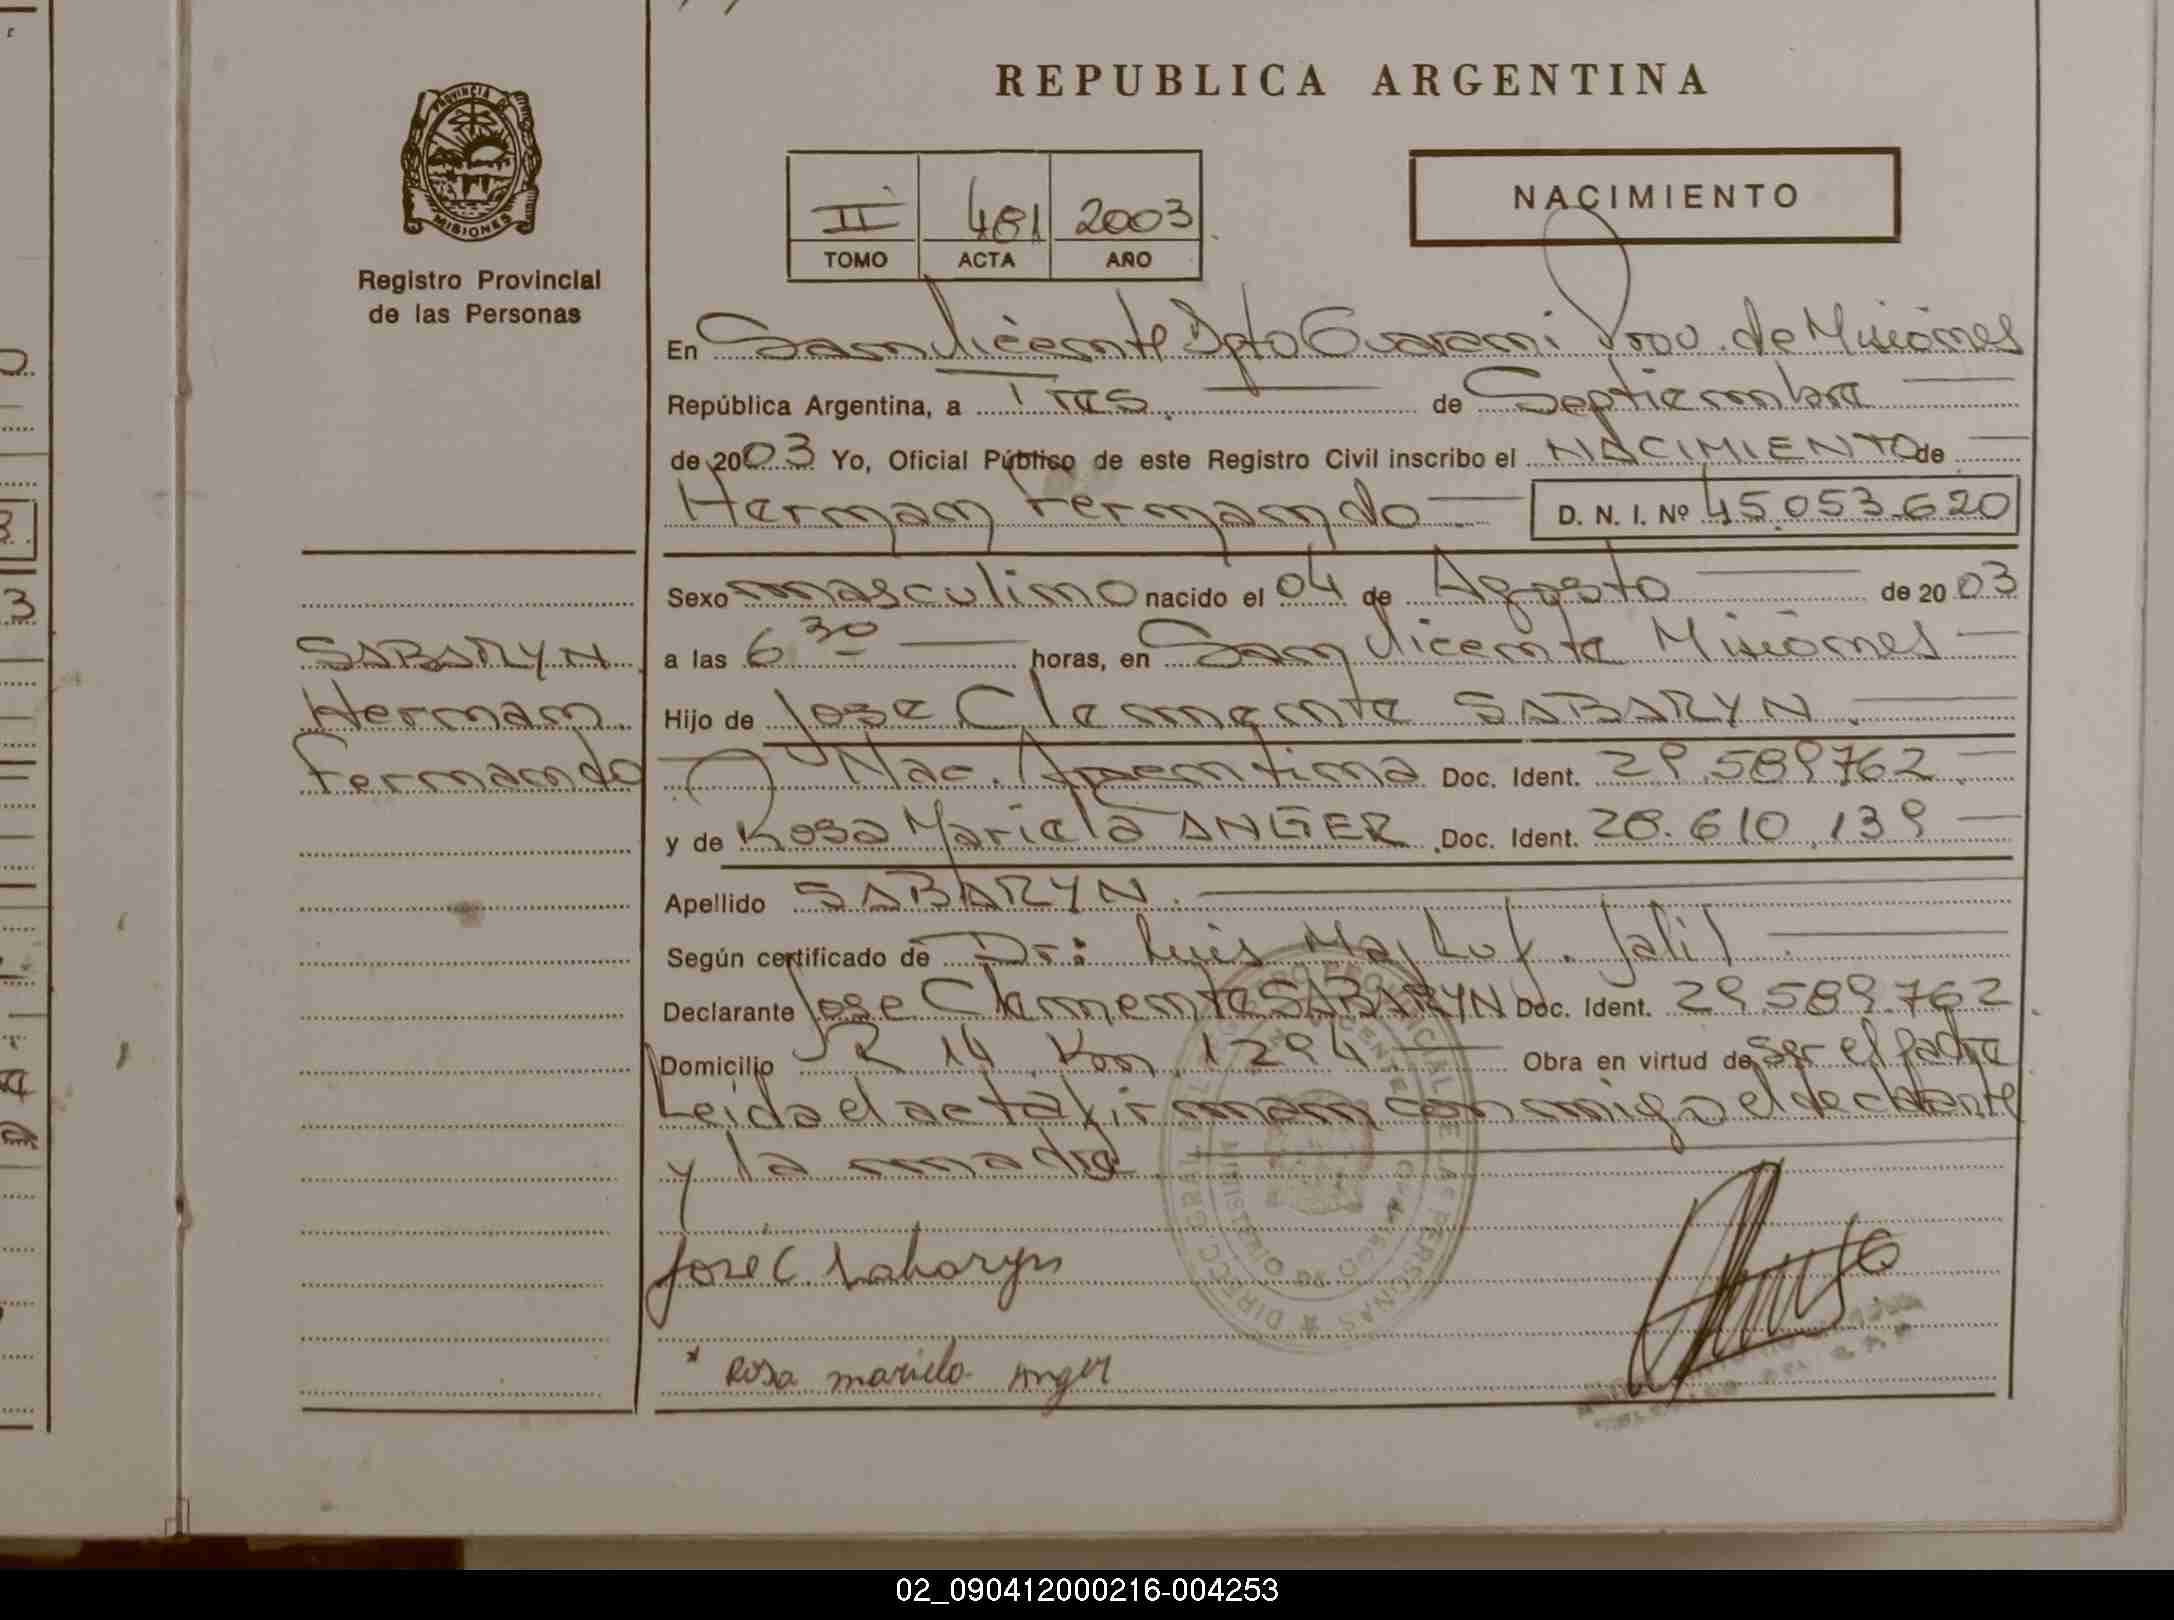 REPUBLICA ARGENTINA
PROVINCIA DE MISIONES
Registro Provincial
de las Personas
II 481 2003
TOMO ACTA AÑO
NACIMIENTO
En San Vicente Dpto Guarani Prov. de Misiones
República Argentina, a Tres. de Septiembre
de 2003 Yo, Oficial Público de este Registro Civil inscribo el NACIMIENTO de
Hernan Fernando D. N. I. Nº 45.053.620
Sexo masculino nacido el 04 de Agosto de 2003
a las 6 30 horas, en San Vicente Misiones
Hijo de Jose Clemente SABARYN.
Nac. Argentina Doc. Ident. 29.589762
y de Rosa Mariela ANGER Doc. Ident. 28.610.139
Apellido SABARYN.
Según certificado de Dr: Luis Jalil
Declarante Jose Clemente SABARYN Doc. Ident. 29.589.762
Domicilio R 14 Km 1294 Obra en virtud de ser el padre
Leida el acta firman conmigo el declarante
y la madre
SABARYN
Hernan
Fernando
Jose C. Sabaryn
* Rosa mariela Anger
02_090412000216-004253